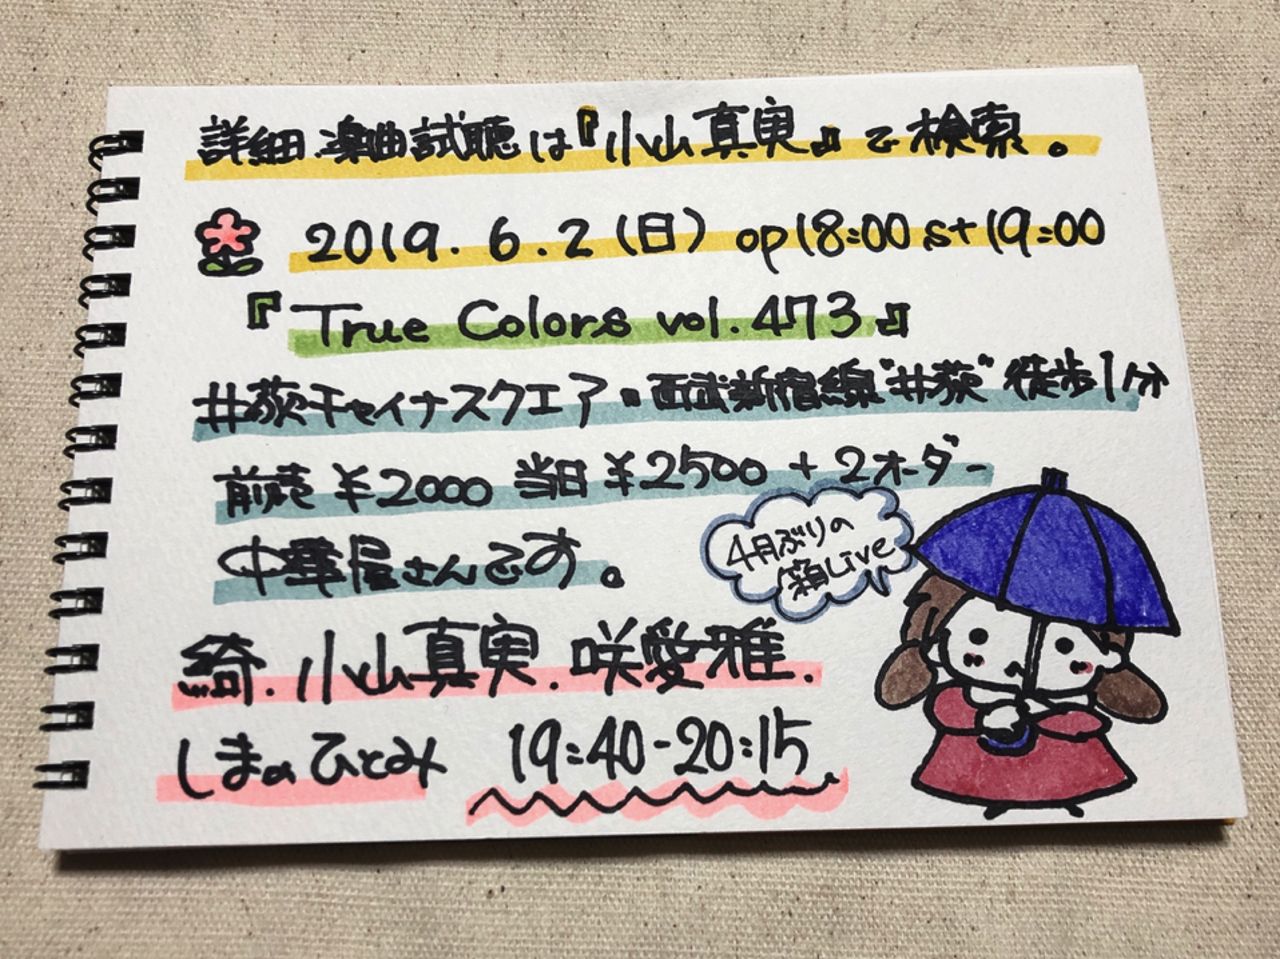 詳細.楽曲試聴は『小山真実』で検索。
2019.6.2(日) op18:00 st19:00
『True Colors vol.473』
井荻チャイナスクエア・西武新宿線"井荻"徒歩1分
前売¥2000 当日¥2500+2オーダー
中華屋さんです。
4月ぶりの
箱Live
綺.小山真実.咲愛雅.
しまのひとみ 19:40-20:15